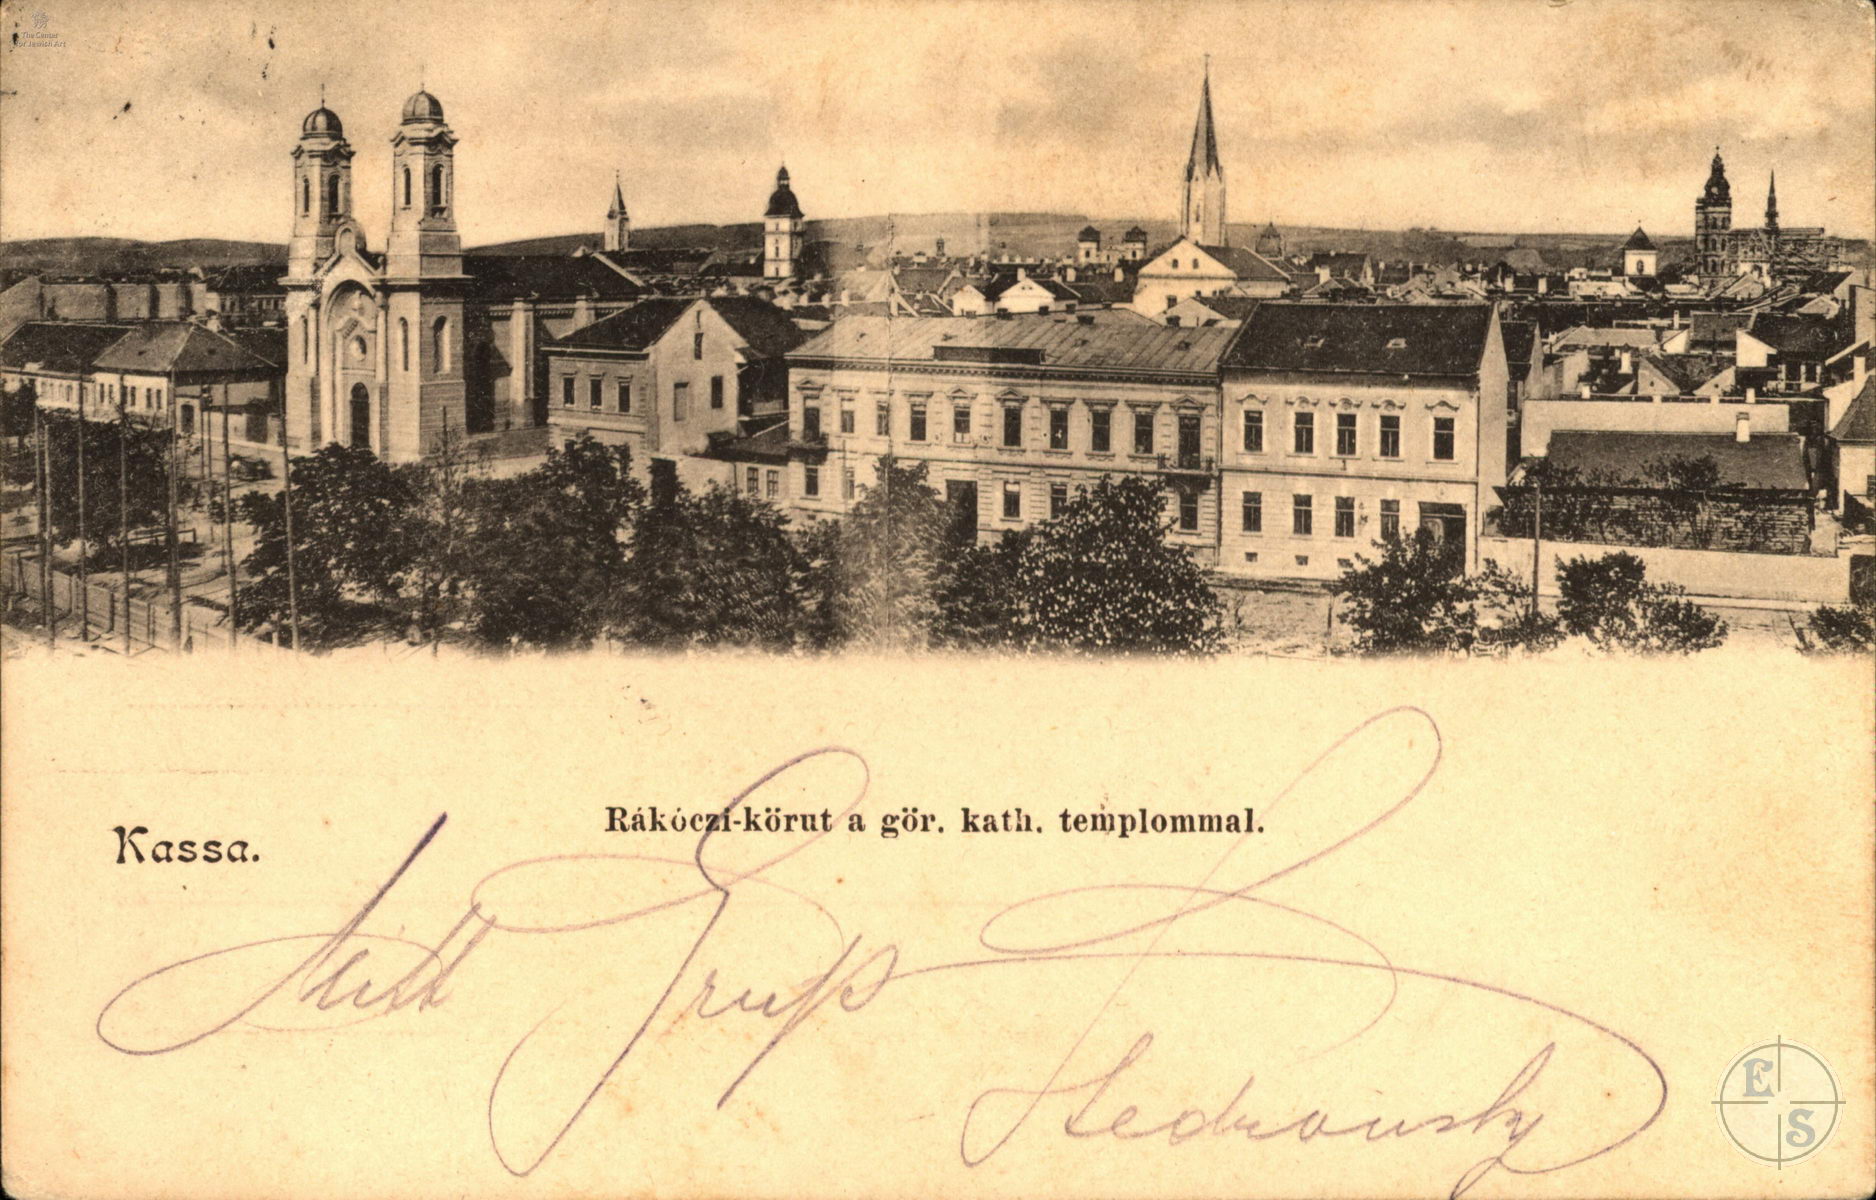 The Center
for Jewish Art
Rákóczi-körut a gör. kath. templommal.
Kassa.
Mit Gruß
E
S